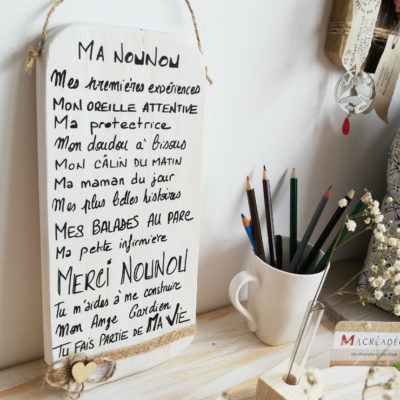 MA NOUNOU
Mes premières expériences
MON OREILLE ATTENTIVE
Ma protectrice
Mon doudou à bisous
MON CÂLIN DU MATIN
Ma maman du jour
Mes plus belles histoires
MES BALADES AU PARC
Ma petite infirmière
MERCI NOUNOU
Tu m'aides à me construire
Mon Ange Gardien
TU FAIS PARTIE DE MA VIE
MACRÉADÉ